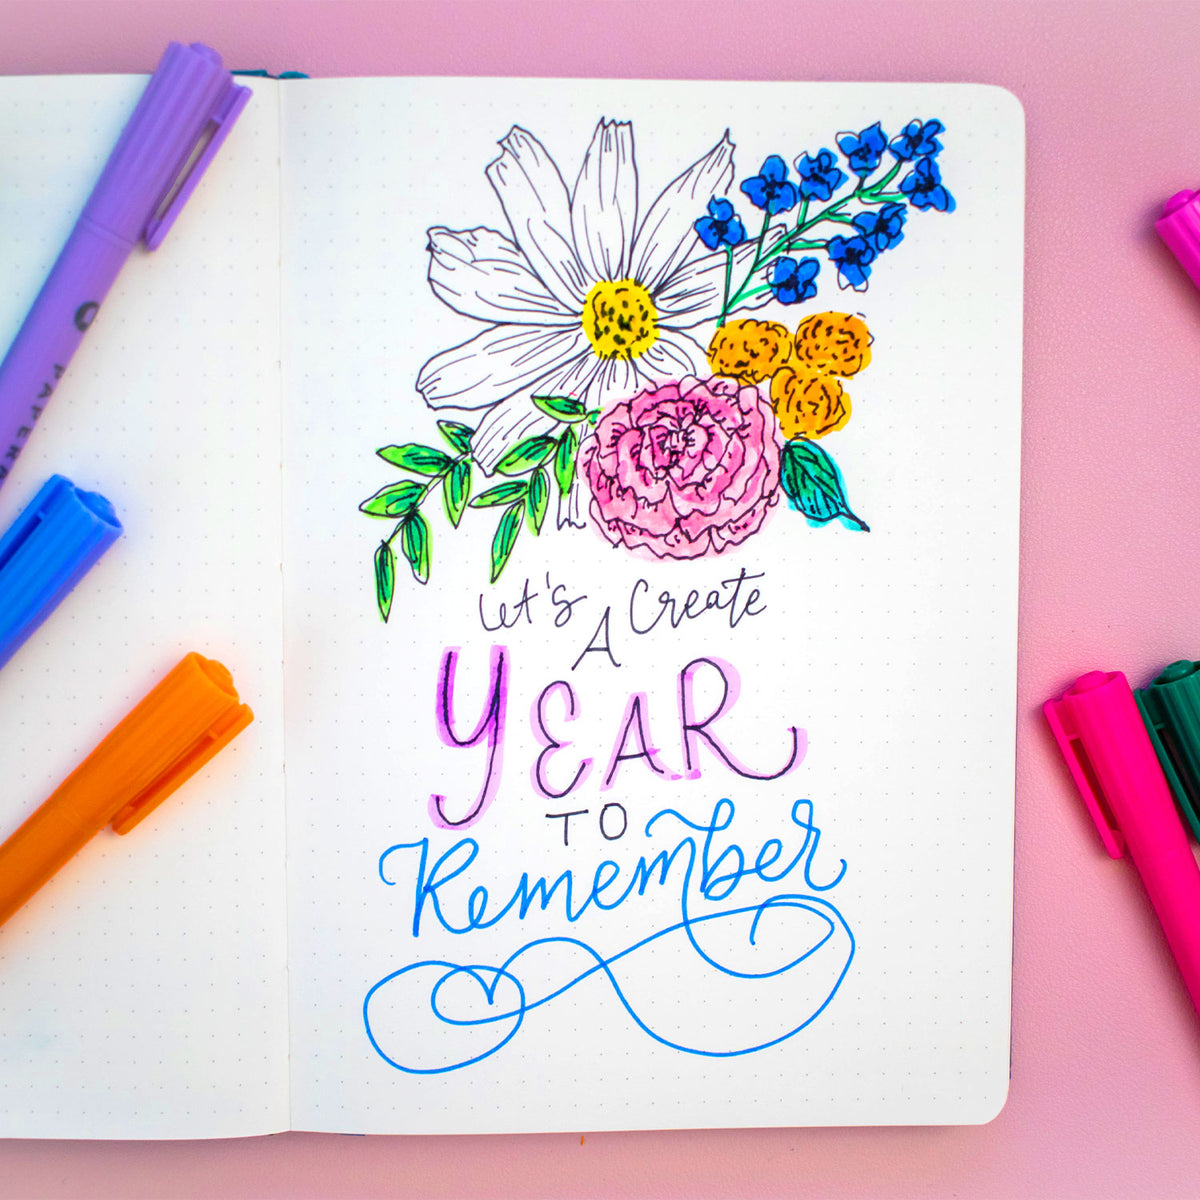 Let's Create
A
YEAR
TO
Remember